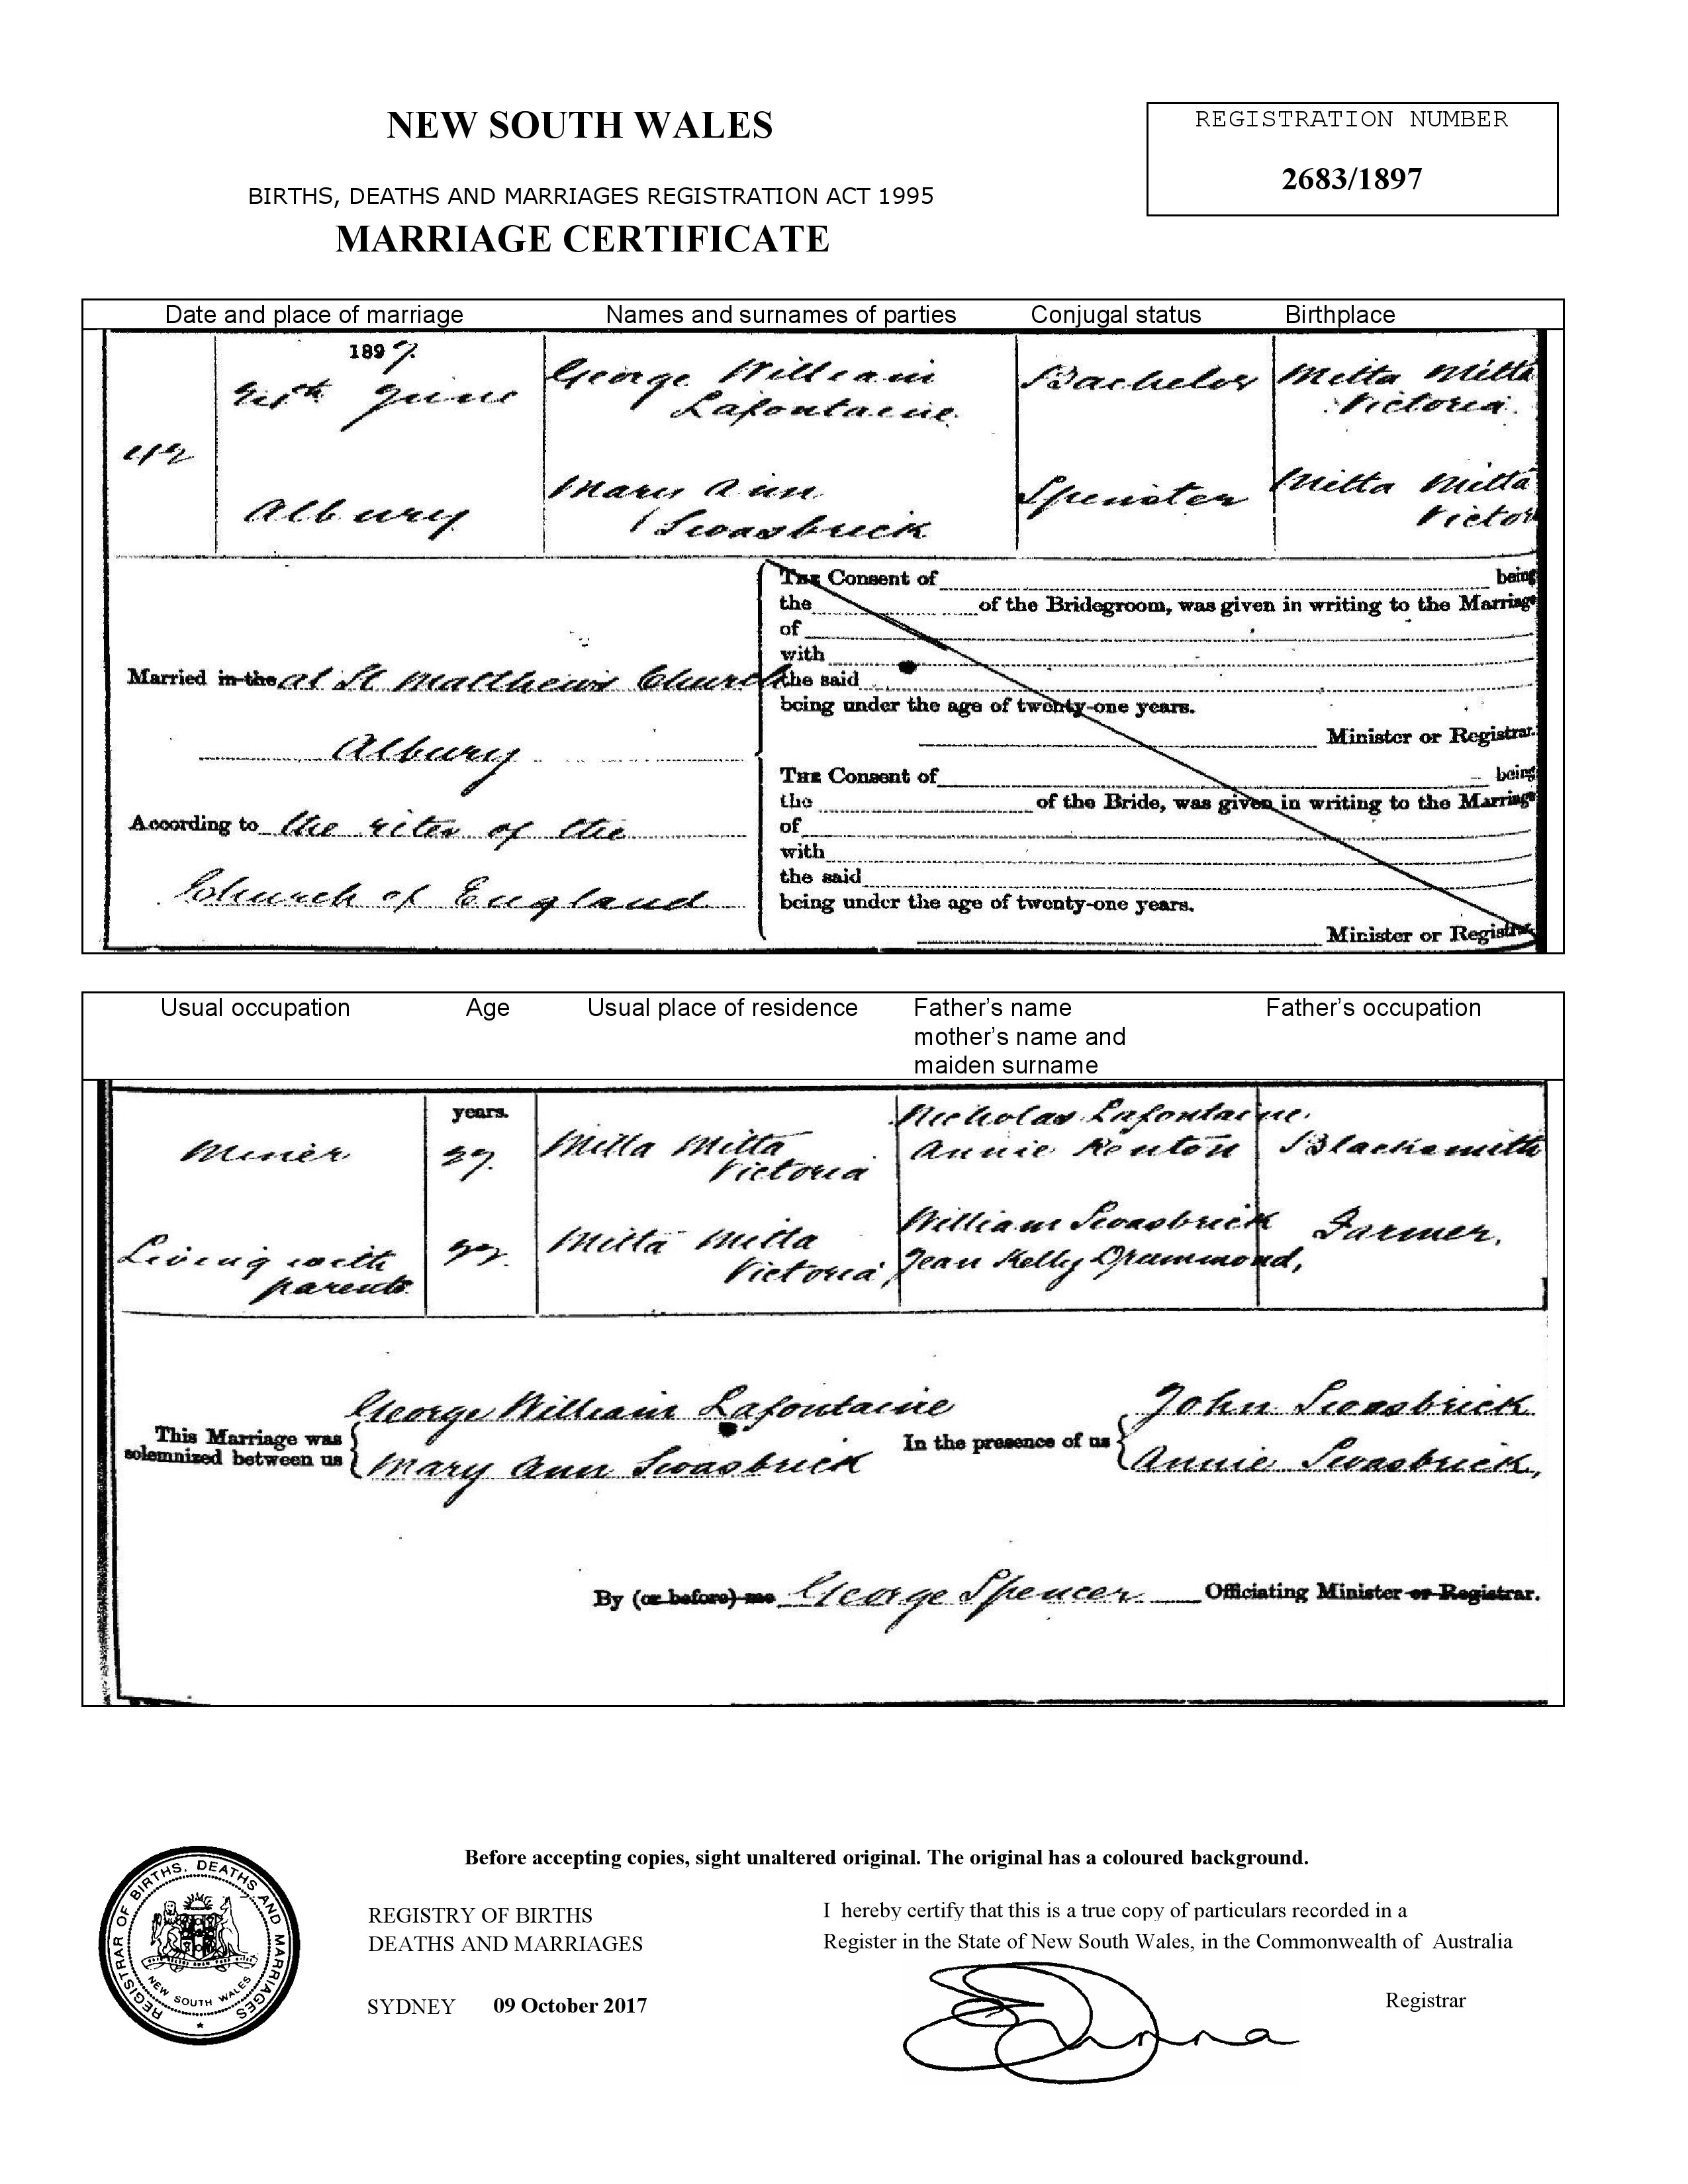 NEW SOUTH WALES
REGISTRATION NUMBER
2683/1897
BIRTHS, DEATHS AND MARRIAGES REGISTRATION ACT 1995
MARRIAGE CERTIFICATE
Date and place of marriage Names and surnames of parties Conjugal status Birthplace
1897.
June George William Bachelor Mitta Mitta
Lafontaine. Victoria.
42
Mary Ann Spinster Mitta Mitta
Albury Swasbrick Victor
THE Consent of being
the of the Bridegroom, was given in writing to the Marriage
of
with
Married in the at St Matthews Church the said
being under the age of twenty-one years.
Minister or Registrar.
Albury
THE Consent of being
the of the Bride, was given in writing to the Marriage
According to the rites of the of
with
the said
Church of England being under the age of twenty-one years.
Minister or Registrar
Usual occupation Age Usual place of residence Father's name Father's occupation
mother's name and
maiden surname
years. Nicholas Lafontaine.
Miner Mitta Mitta Annie Renton Blacksmith
Victoria
William Swasbrick Farmer,
Living with Mitta Mitta Jean Kelly Drummond,
parents. Victoria,
George William Lafontaine John Swasbrick
This Marriage was In the presence of us
solemnized between us
Mary Ann Swasbrick Annie Swasbrick,
By (or before) me George Spencer Officiating Minister or Registrar.
Before accepting copies, sight unaltered original. The original has a coloured background.
REGISTRAR OF BIRTHS, DEATHS AND MARRIAGES
NEW SOUTH WALES
REGISTRY OF BIRTHS
DEATHS AND MARRIAGES
I hereby certify that this is a true copy of particulars recorded in a
Register in the State of New South Wales, in the Commonwealth of Australia
SYDNEY 09 October 2017
Registrar